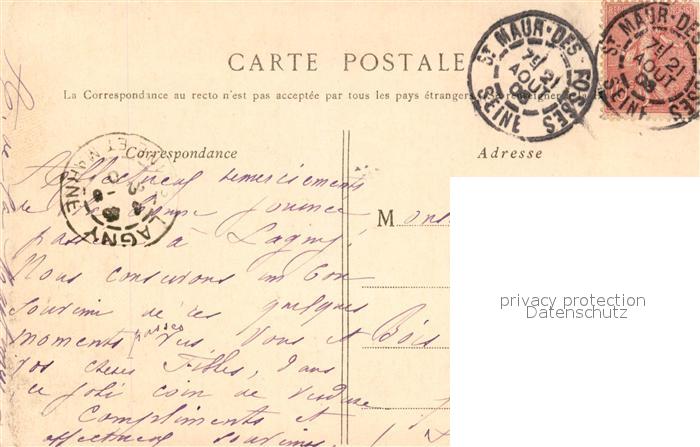 CARTE POSTALE
La Correspondance au recto n'est pas acceptée par tous les pays étrangers (Se renseigner
ST MAUR-DES-FOSSES
7E/ 21
AOUT
SEINE
ST MAUR-DES-FOSSES
7E/ 21
AOUT
03
SEINE
Correspondance
Adresse
LAGNY
ET MARNE
Affectueux remerciements
de la bonne journée
passée à Lagny.
Nous conservons un bon
souvenir de ces quelques
moments passés
Vous et
vos chères Filles, dans
ce joli coin de verdure
Compliments et
affectueux souvenirs
M
Bois
privacy protection
Datenschutz